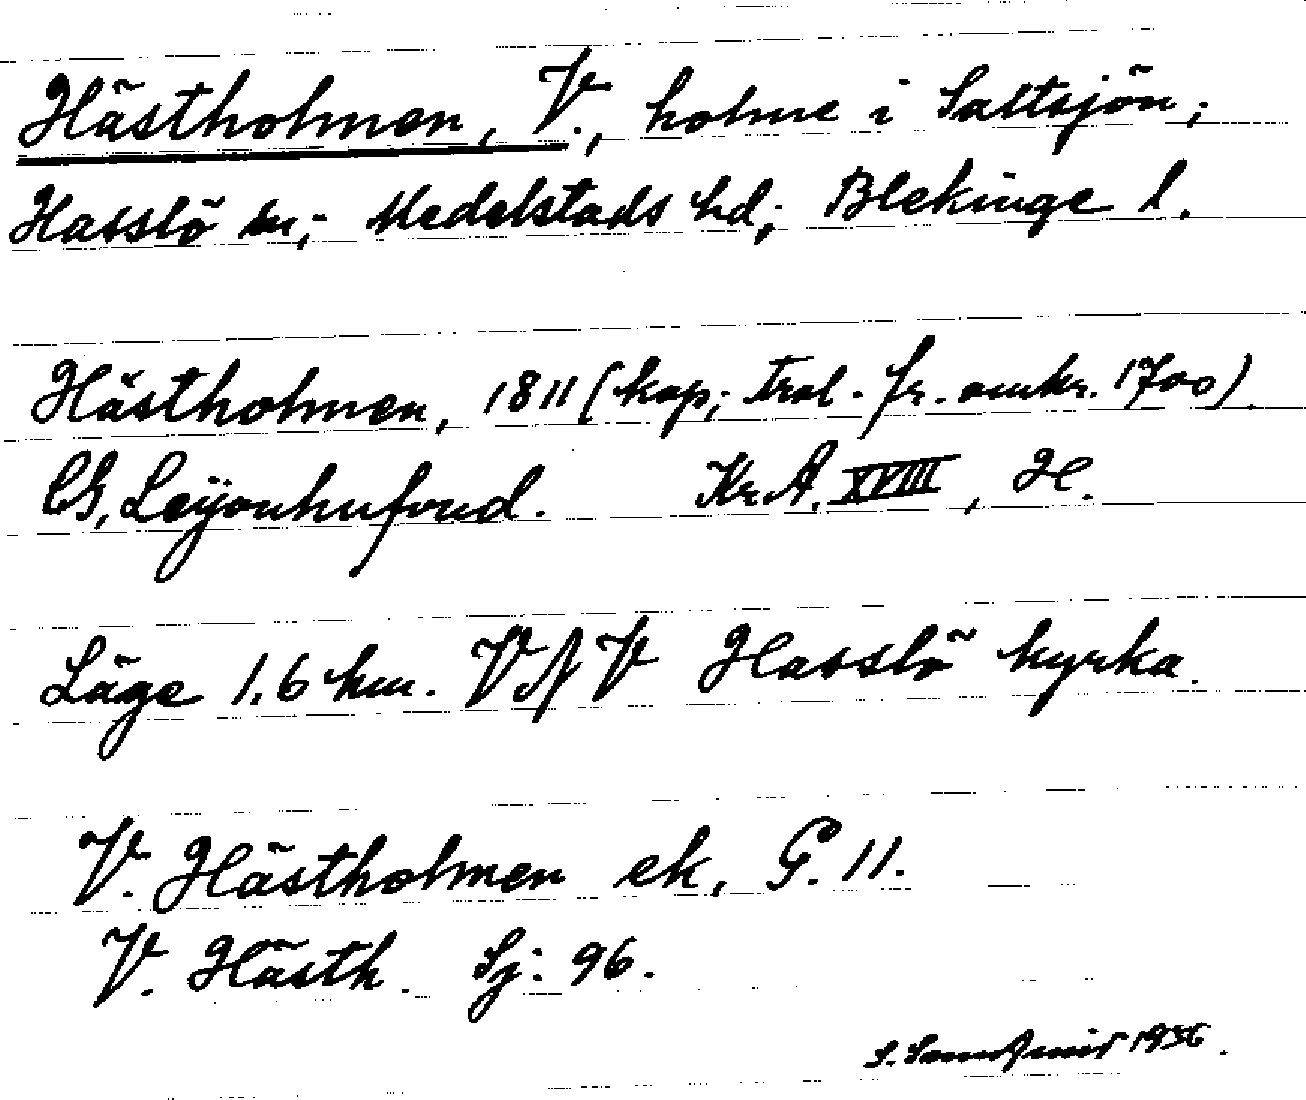 Hästholmen, V., holme i Saltsjön;
Hasslö sn; Medelstads hd; Blekinge l.
Hästholmen, 1811 (kop; trol. fr. omkr. 1700)
CG, Leijonhufvud. Kr.A. XVIII, H.
Läge 1.6 km. VNV Hasslö kyrka.
V. Hästholmen ek, G. 11.
V. Hästh. Sj: 96.
S. 1936.